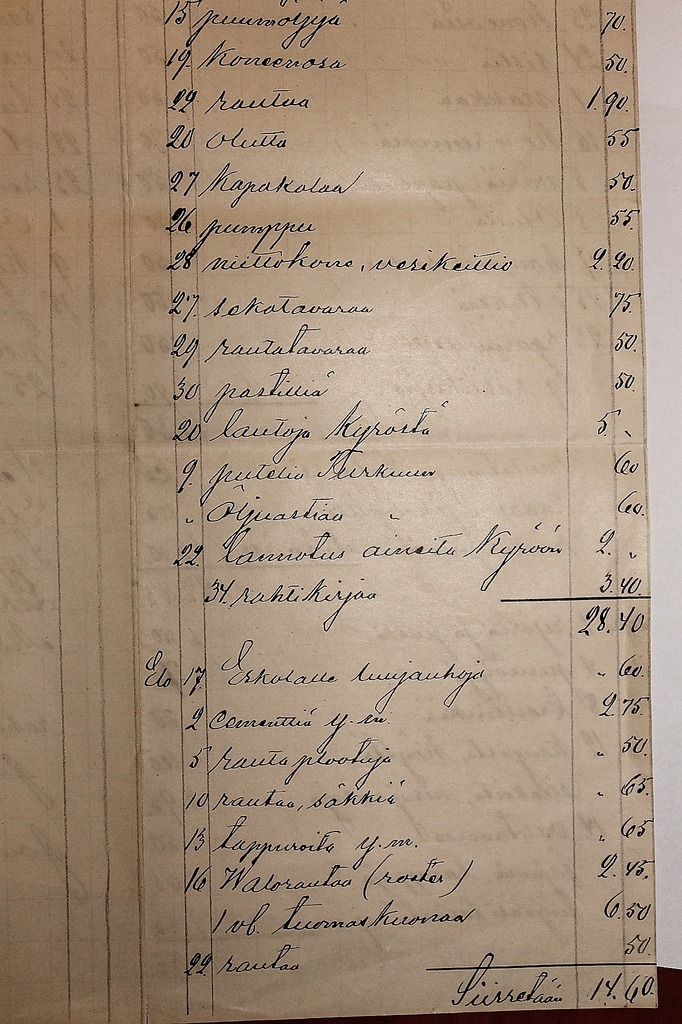 15 puumöljyä 70.
19. Koneenosa 50.
22 rautaa 1.90.
20 olutta 55
27 Kapakalaa 50.
26 pumppu 55.
28 niittokone, vesikeittio 2.20.
27. sekatavaraa 75.
29. rautatavaraa 50.
30 pastilliä 50.
20 lautoja Kyröstä 5 "
9. putelia Turkuun 60
" Öljyastiaa " 60.
22. Lannotus aineita Kyröön 2. "
34 rahtikirjaa 3.40.
28.40
Elo 17. Eskolalle luujauhoja " 60.
2 cementtiä y.m. 2.75.
5 rauta plootuja " 50.
10 rautaa, säkkiä " 65.
13 tappuroita y.m. " 65
16 Walorautaa (roster) 2.45.
1 vl. tuomaskuonaa 6.50
22 rautaa 50.
Siirretään 14.60.